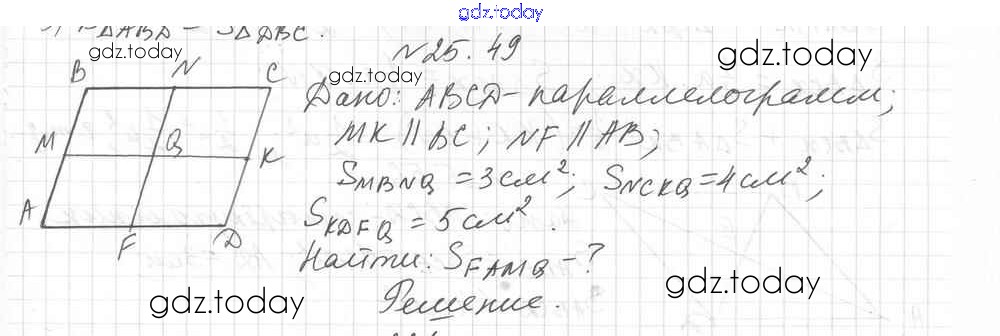 gdz.today
SΔABD = SΔDBC.
N25.49
gdz.today
gdz.today
gdz.today
B N C
M Q K
A F D
Дано: ABCD-параллелограмм;
MK || BC; NF || AB;
SMBNQ = 3 см²; SNCKQ = 4 см²;
SKDFQ = 5 см².
Найти: SFAMQ - ?
gdz.today
gdz.today
Решение.